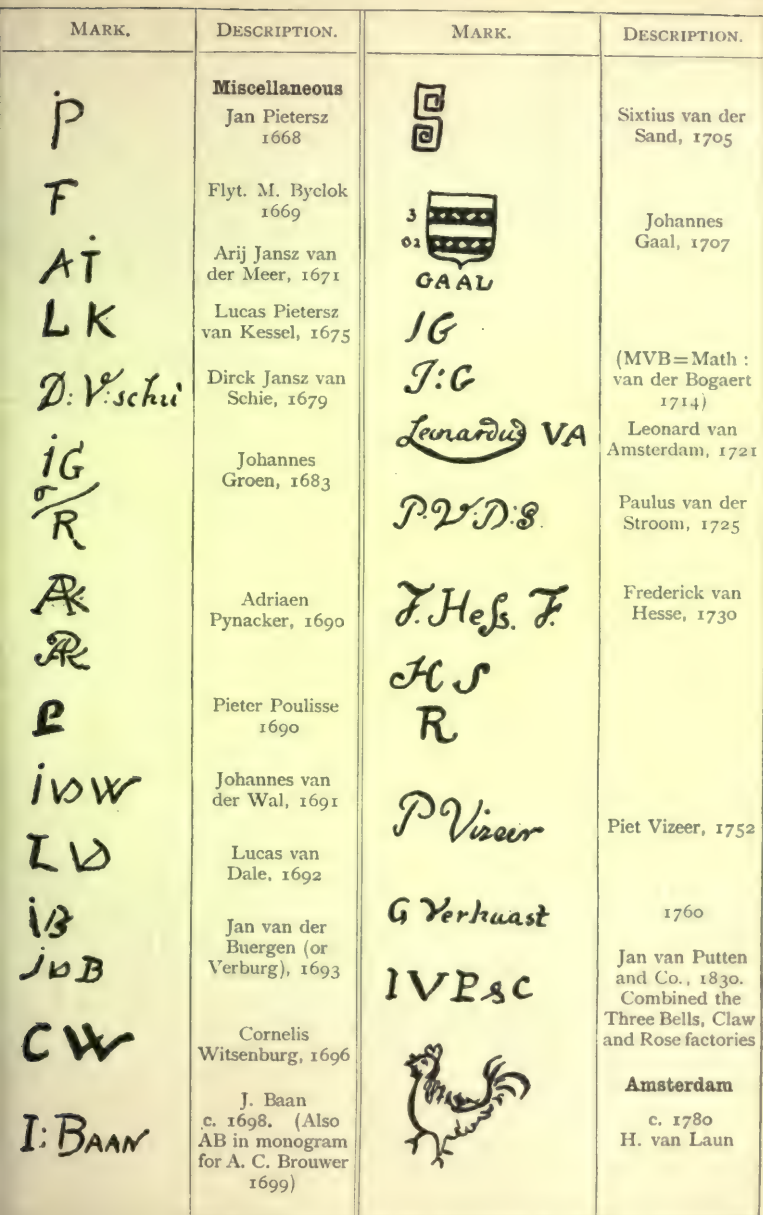 MARK.
DESCRIPTION.
MARK.
DESCRIPTION.
Miscellaneous
iP
Jan Pietersz
1668
F
Flyt. M. Byclok
1669
AT
Arij Jansz van
der Meer, 1671
L K
Lucas Pietersz
van Kessel, 1675
D: V:schii
Dirck Jansz van
Schie, 1679
iG
R
Johannes
Groen, 1683
Adriaen
Pynacker, 1690
P
Pieter Poulisse
1690
ivW
Johannes van
der Wal, 1691
LVD
Lucas van
Dale, 1692
iB
jvB
Jan van der
Buergen (or
Verburg), 1693
CW
Cornelis
Witsenburg, 1696
I: BAAN
J. Baan
c. 1698. (Also
AB in monogram
for A. C. Brouwer
1699)
S
Sixtius van der
Sand, 1705
3
02
GAAL
Johannes
Gaal, 1707
IG
J:G
(MVB=Math :
van der Bogaert
1714)
Leonardus VA
Leonard van
Amsterdam, 1721
P.V.D:S.
Paulus van der
Stroom, 1725
F. Hess. F.
Frederick van
Hesse, 1730
H S
R
P Vizeer
Piet Vizeer, 1752
G Verhaast
1760
IVP&C
Jan van Putten
and Co., 1830.
Combined the
Three Bells, Claw
and Rose factories
Amsterdam
c. 1780
H. van Laun